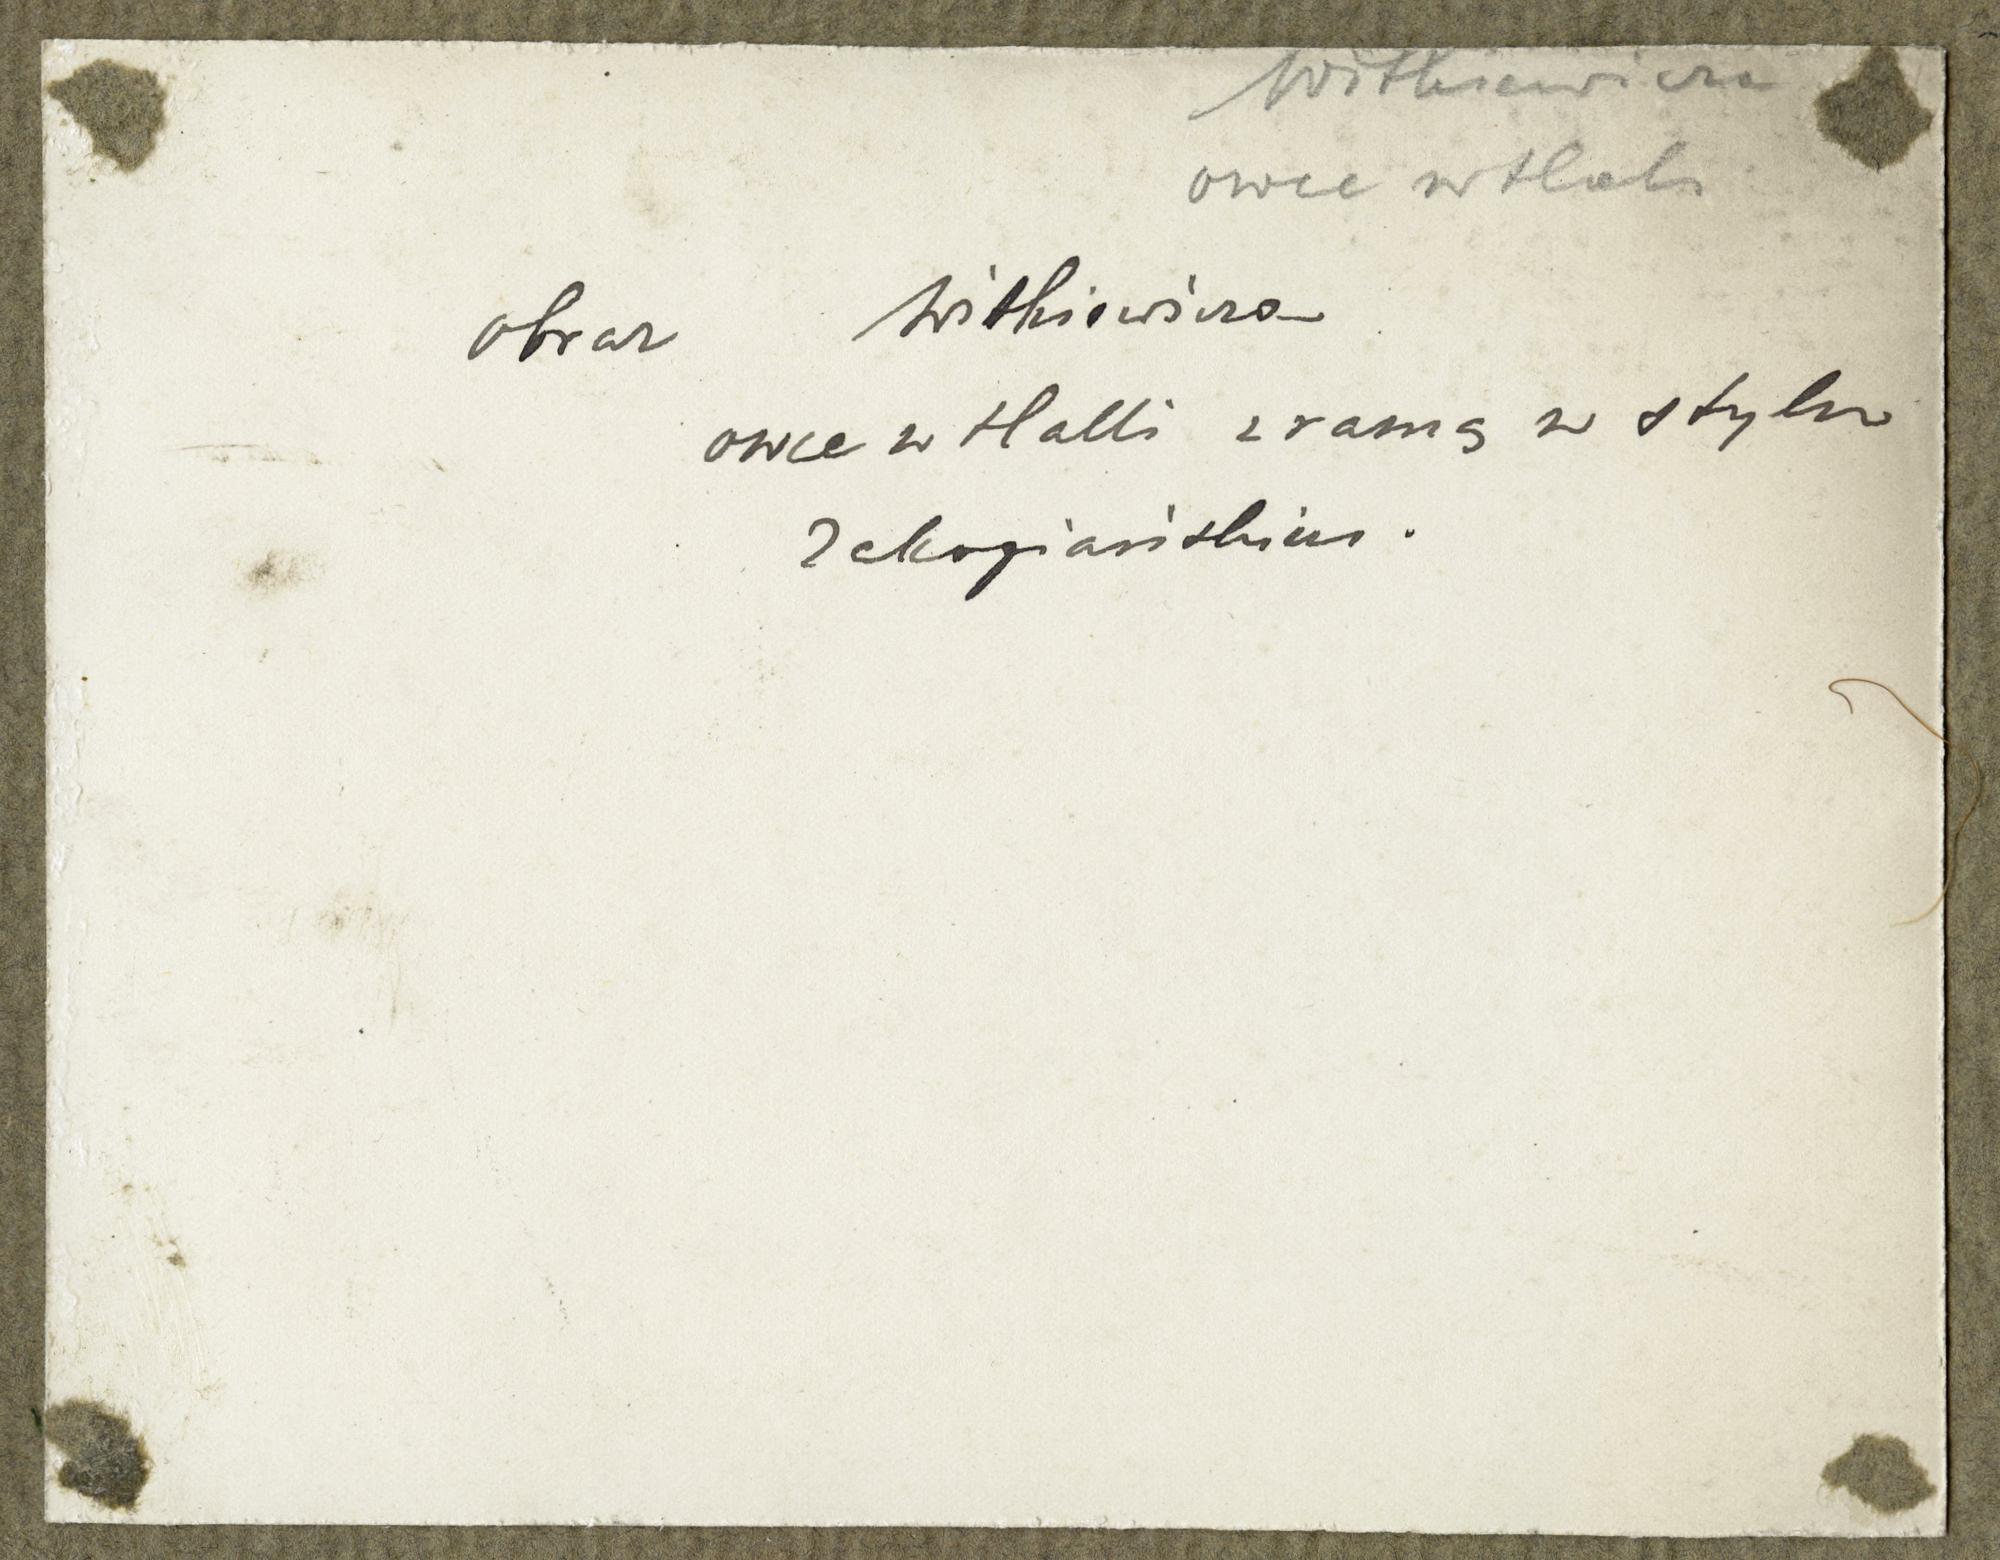 Witkiewicza
owce w hali
obraz Witkiewicza
owce w Halli z ramą w stylu
Zakopiańskim.